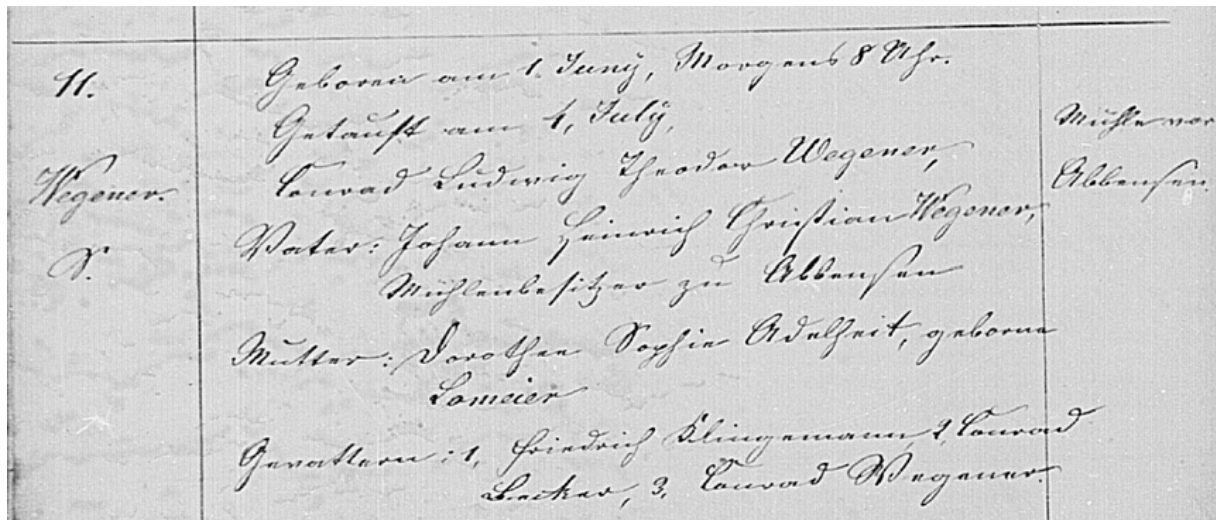 11.
Wegener.
S.
Geboren am 1. Juny, Morgens 8 Uhr.
Getauft am 4, July,
Conrad Ludwig Theodor Wegener,
Vater: Johann Heinrich Christian Wegener,
Mühlenbesitzer zu Abbensen
Mutter: Dorothee Sophie Adelheit, geborne
Lomeier
Gevattern: 1, Friedrich Klingemann 2, Conrad
Becker, 3, Conrad Wegener.
Mühle vor
Abbensen.